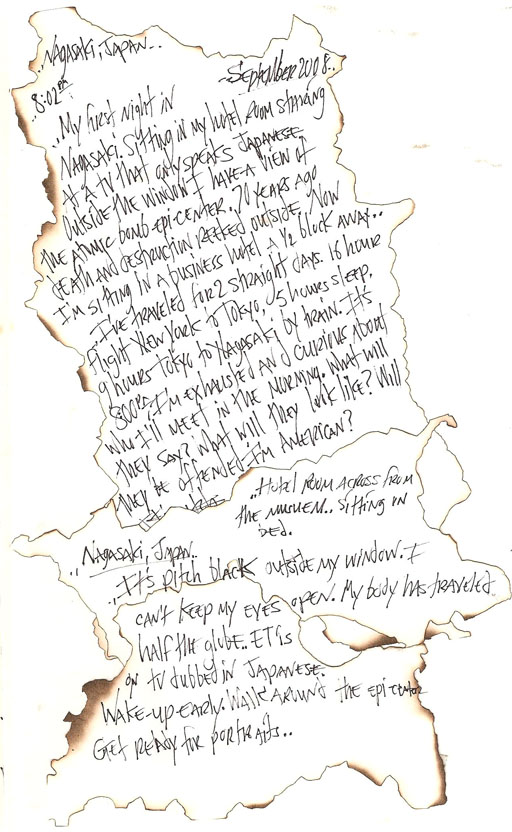 ..Nagasaki, Japan..
..September 2008..
8:02 pm
..My first night in
Nagasaki. Sitting in my hotel room staring
at a TV that only speaks Japanese.
Outside the window I have a view of
the atomic bomb epi-center. 70 years ago
death and destruction reeked outside. Now
I'm sitting in a business hotel a ½ block away..
..I've traveled for 2 straight days. 16 hour
flight New York to Tokyo, .5 hours sleep,
9 hours Tokyo to Nagasaki by train. It's
800PM, I'm exhausted and curious about
who I'll meet in the morning. What will
they say? What will they look like? Will
they be offended I'm American?
..Hotel room across from
the museum.. sitting in
bed.
..Nagasaki, Japan..
..It's pitch black outside my window. I
can't keep my eyes open. My body has traveled
half the globe.. ET is
on TV dubbed in Japanese.
Wake-up-early. Walk around the epi-center
Get ready for portraits..